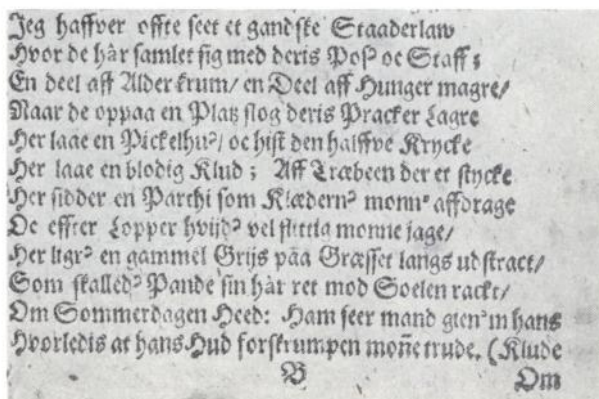 Jeg haffver offte seet et gandske Staaderlaw
Hvor de hàr samlet sig med deris Posꝰ oc Staff;
En deel aff Alder krum/ en Deel aff Hunger magre/
Naar de oppaa en Platz slog deris Pracker Lagre
Her laae en Pickelhuꝰ/ oc hist den halffve Krycke
Her laae en blodig Klud; Aff Træbeen der et stycke
Her sidder en Parthi som Klædernꝰ monnꝰ affdrage
Oc effter Lopper hvijdꝰ vel flittla monne jage/
Her ligrꝰ en gammel Grijs pàa Græsset langs udstract/
Som skalledꝰ Pande sin hàr ret mod Soelen rackt/
Om Sommerdagen Heed: Ham seer mand gienꝰm hans
Hvorledis at hans Hud forskrumpen mon̄e trude. (Klude
B Om